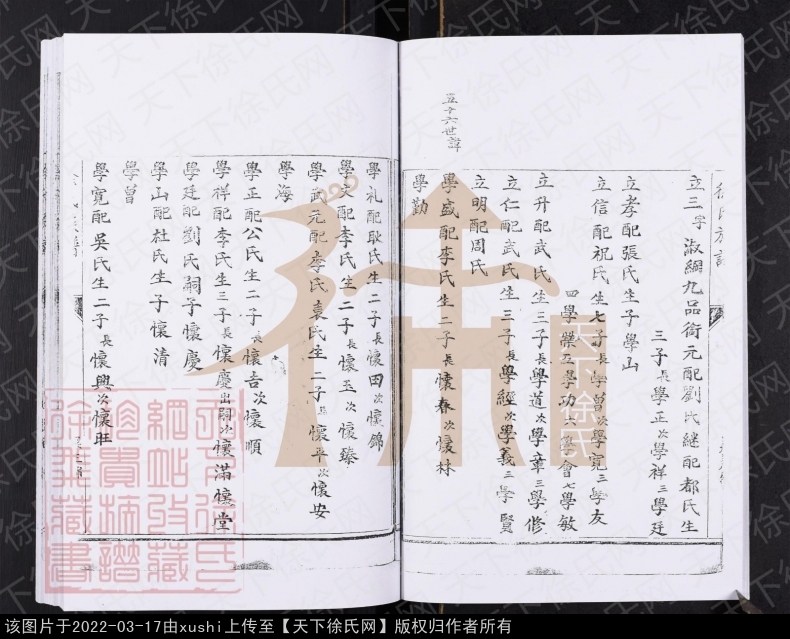 徐氏族譜
立三字淑綱九品銜元配劉氏継配都氏生
三子長學正次學祥三學廷
立孝配張氏生子學山
立信配祝氏生七子長學曾次學寬三學友
四學榮五學功六學會七學敏
立升配武氏生三子長學道次學章三學修
立仁配武氏生三子長學經次學義三學賢
立明配周氏
五十六世諱
學盛配李氏生二子長懷春次懷林
學勤
學礼配耿氏生二子長懷田次懷錦
學文配李氏生二子長懷玉次懷臻
學武元配李氏袁氏生二子長懷平次懷安
學海
學正配公氏生二子長懷吉次懷順
學祥配李氏生三子長懷慶出嗣次懷滿懷堂
學廷配劉氏嗣子懷慶
學山配杜氏生子懷清
學曾
學寬配吳氏生二子長懷興次懷旺
天下徐氏
天下徐氏网
该图片于2022-03-17由xushi上传至【天下徐氏网】版权归作者所有